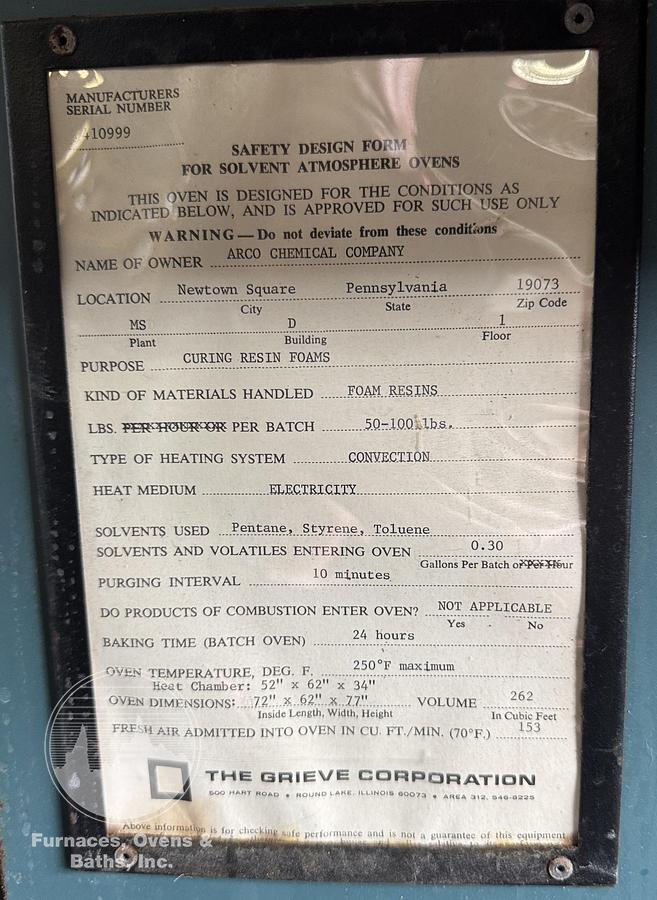 MANUFACTURERS
SERIAL NUMBER
410999
SAFETY DESIGN FORM
FOR SOLVENT ATMOSPHERE OVENS
THIS OVEN IS DESIGNED FOR THE CONDITIONS AS
INDICATED BELOW, AND IS APPROVED FOR SUCH USE ONLY
WARNING — Do not deviate from these conditions
NAME OF OWNER ARCO CHEMICAL COMPANY
LOCATION Newtown Square Pennsylvania 19073
City State Zip Code
MS D 1
Plant Building Floor
PURPOSE CURING RESIN FOAMS
KIND OF MATERIALS HANDLED FOAM RESINS
LBS. PER HOUR OR PER BATCH 50-100 lbs.
TYPE OF HEATING SYSTEM CONVECTION
HEAT MEDIUM ELECTRICITY
SOLVENTS USED Pentane, Styrene, Toluene
SOLVENTS AND VOLATILES ENTERING OVEN 0.30
Gallons Per Batch or Per Hour
PURGING INTERVAL 10 minutes
DO PRODUCTS OF COMBUSTION ENTER OVEN? NOT APPLICABLE
Yes - No
BAKING TIME (BATCH OVEN) 24 hours
OVEN TEMPERATURE, DEG. F. 250°F maximum
Heat Chamber: 52" x 62" x 34"
OVEN DIMENSIONS: 72" x 62" x 77" VOLUME 262
Inside Length, Width, Height In Cubic Feet
FRESH AIR ADMITTED INTO OVEN IN CU. FT./MIN. (70°F.) 153
THE GRIEVE CORPORATION
500 HART ROAD • ROUND LAKE, ILLINOIS 60073 • AREA 312, 546-8225
Above information is for checking safe performance and is not a guarantee of this equipment
Furnaces, Ovens &
Baths, Inc.